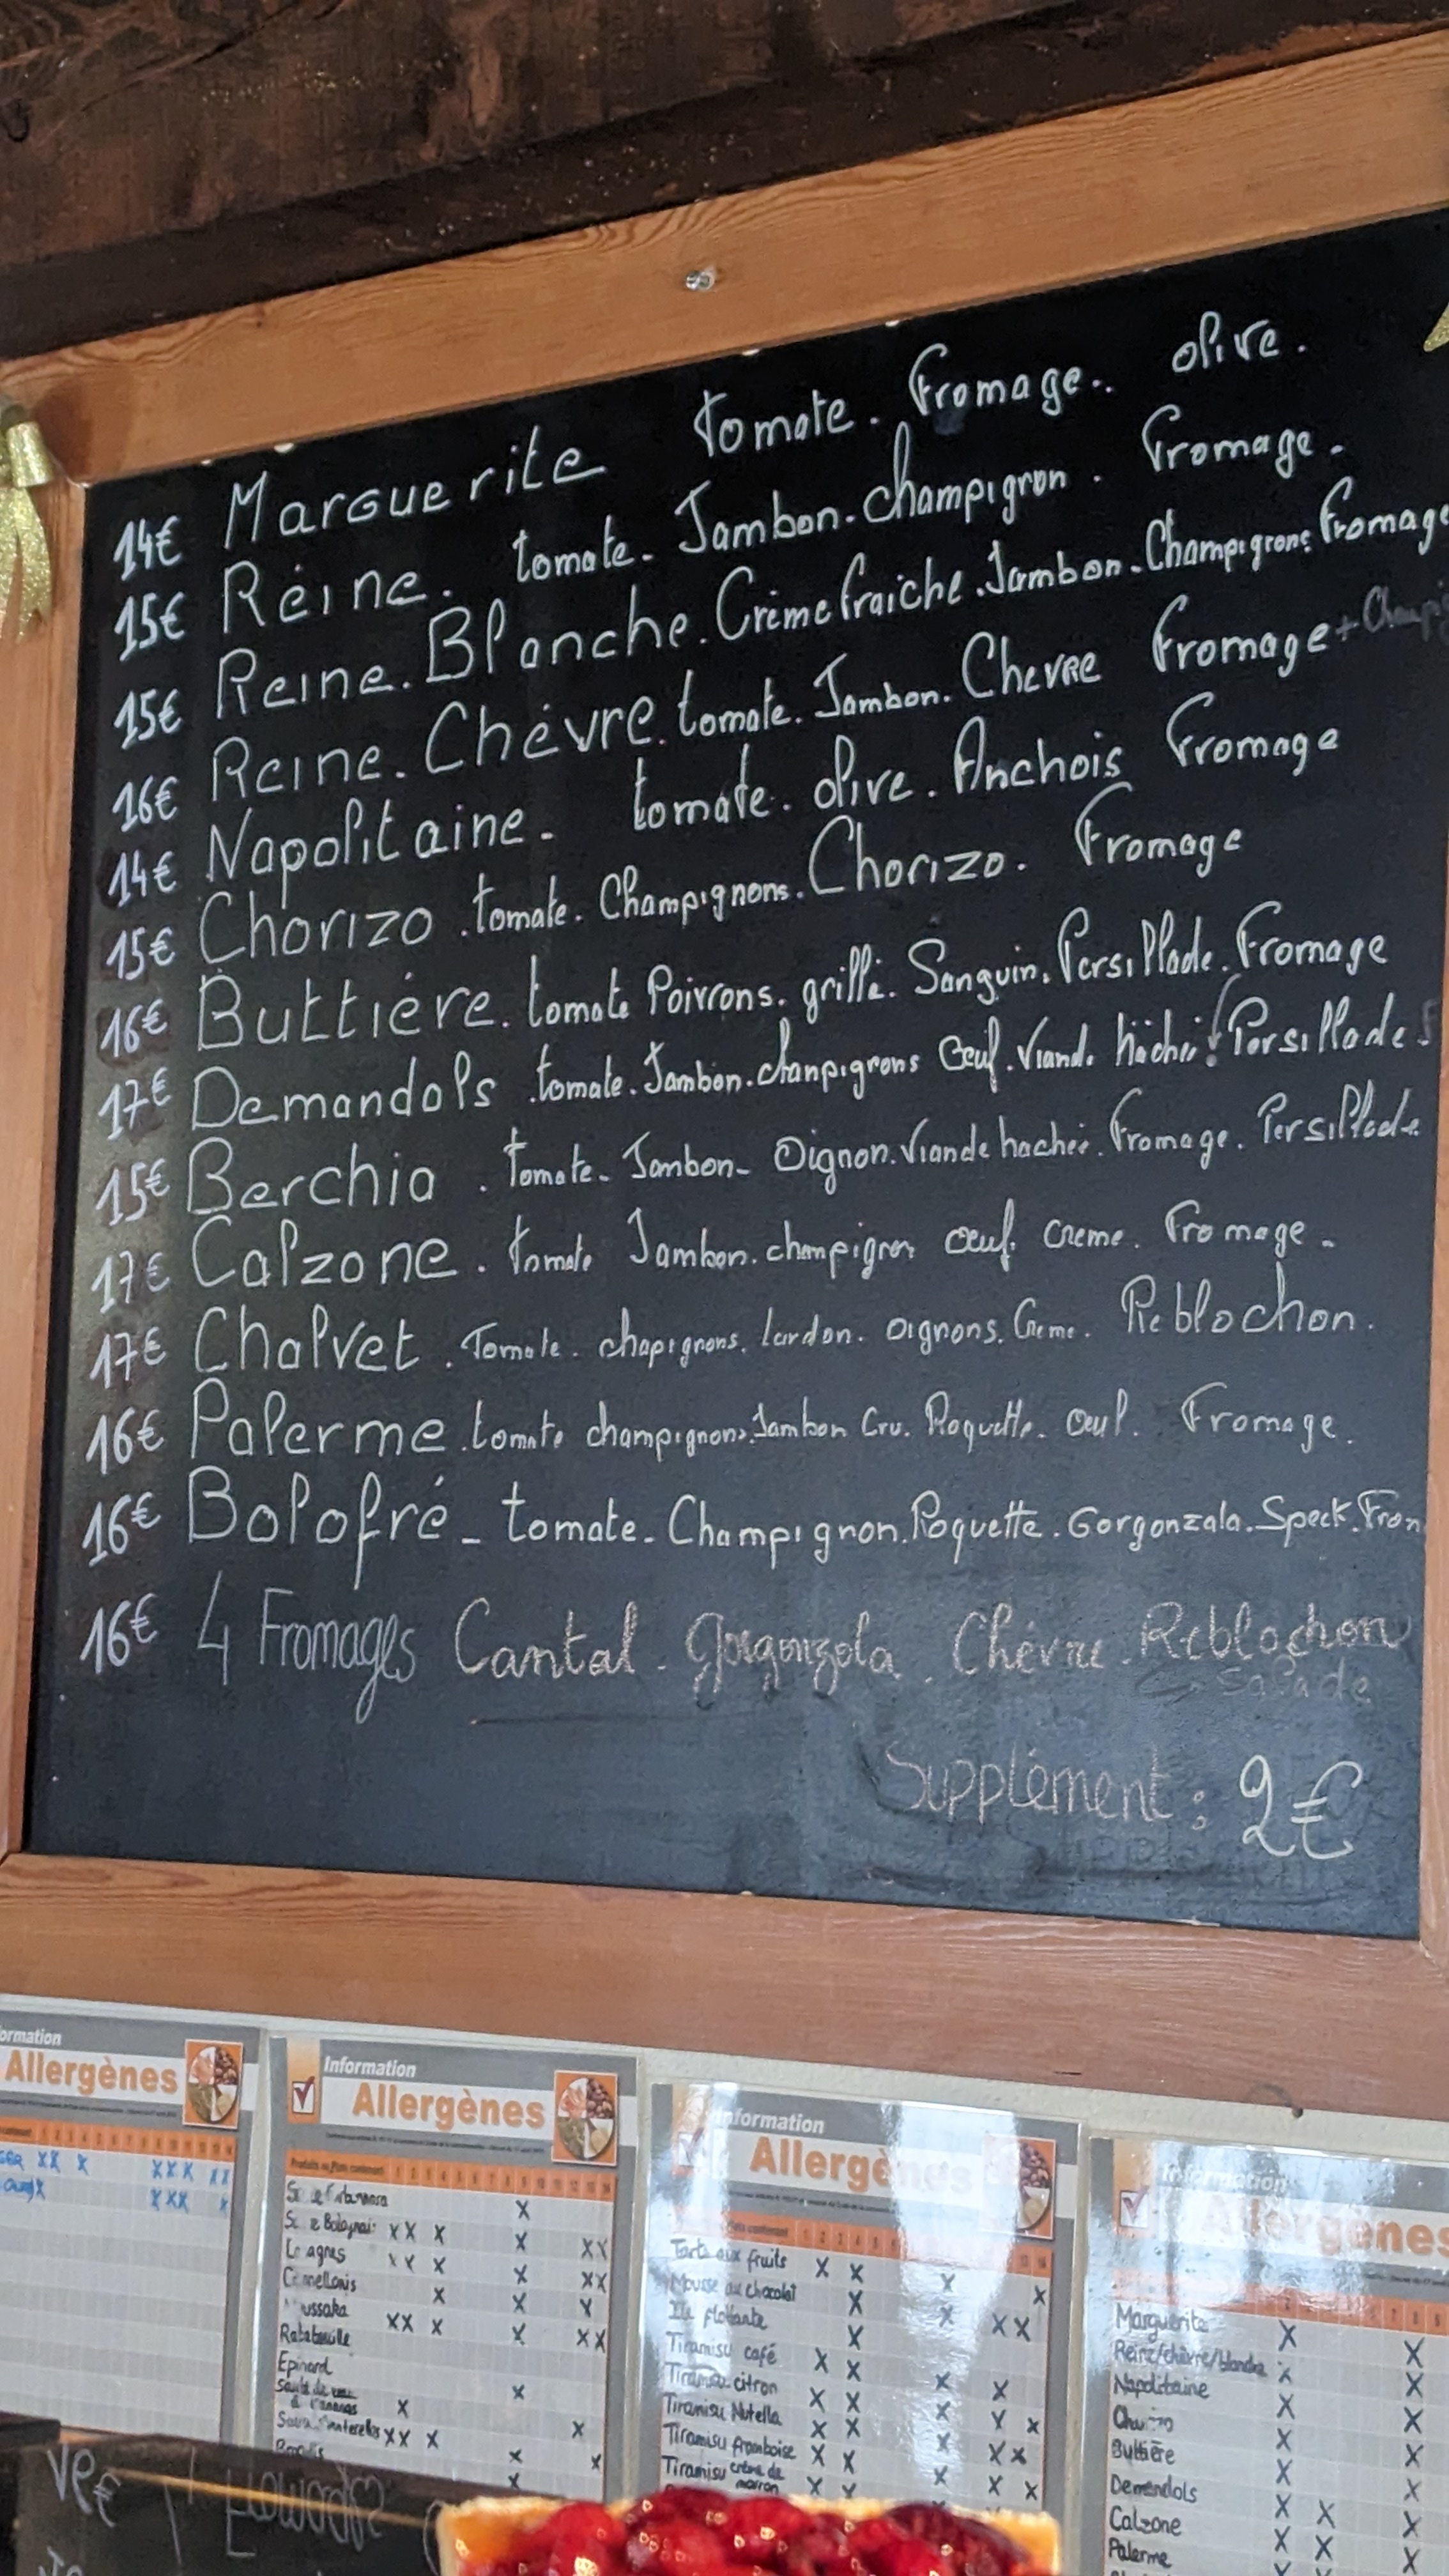 14€ Marguerite tomate. Fromage.. olive.
15€ Reine. tomate. Jambon. champignon. fromage.
15€ Reine. Blanche. Crème fraiche. Jambon. Champignons fromage
16€ Reine. Chévre. tomate. Jambon. Chevre fromage +
14€ Napolitaine. tomate. olive. Anchois fromage
15€ Chorizo. tomate. Champignons. Chorizo. Fromage
16€ Buttiére. tomate Poivrons. grillé. Sanguin. Persillade. Fromage
17€ Demandols. tomate. Jambon. champignons Oeuf. Viande hachée Persillade.
15€ Berchia. Tomate. Jambon. Oignon. Viande hachée. fromage. Persillade
17€ Calzone. tomate Jambon. champignon oeuf. creme. Fromage.
17€ Chalvet. Tomate. chapignons. lardon. oignons. Creme. Reblochon.
16€ Palerme. tomate champignons. Jambon Cru. Roquette. oeuf. Fromage.
16€ Bolofré - tomate. Champignon. Roquette. Gorgonzala. Speck. From
16€ 4 Fromages Cantal. Gorgonzola. Chévre. Reblochon
Salade
Supplément : 2€
ormation
Allergènes
Information
Allergènes
Lasagnes
Ratatouille
Epinard
Information
Allergènes
Tarte aux fruits
Mousse au chocolat
Ile flottante
Tiramisu café
Tiramisu citron
Tiramisu Nutella
Tiramisu framboise
Tiramisu crème de marron
Information
Allergènes
Marguerite
Reine/chèvre/blanche
Napolitaine
Chorizo
Buttière
Demandols
Calzone
Palerme